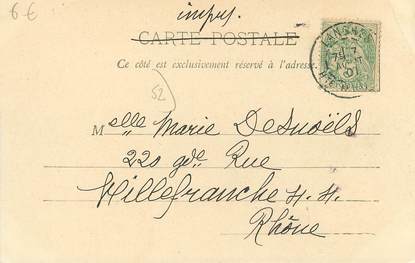 6 €
impr.
CARTE POSTALE
Ce côté est exclusivement réservé à l'adresse.
52
Melle Marie Desnoëls
220 gde Rue
Villefranche
Rhône